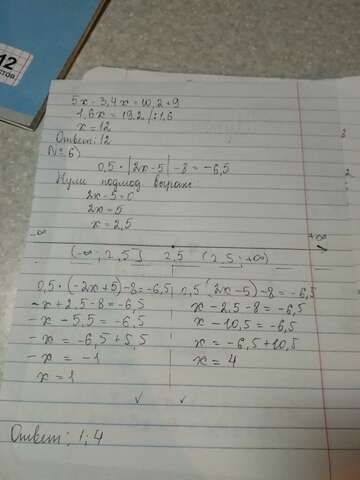 12
стов
5x - 3,4x = 10,2 + 9
1,6x = 19,2 / : 1,6
x = 12
Ответ: 12
№ 6)
0,5 · |2x - 5| - 8 = -6,5
Нули подмод выраж:
2x - 5 = 0
2x = 5
x = 2,5
-∞ +∞
(-∞; 2,5] 2,5 (2,5; +∞)
0,5 · (-2x + 5) - 8 = -6,5 0,5 (2x - 5) - 8 = -6,5
-x + 2,5 - 8 = -6,5 x - 2,5 - 8 = -6,5
-x - 5,5 = -6,5 x - 10,5 = -6,5
-x = -6,5 + 5,5 x = -6,5 + 10,5
-x = -1 x = 4
x = 1
Ответ: 1; 4